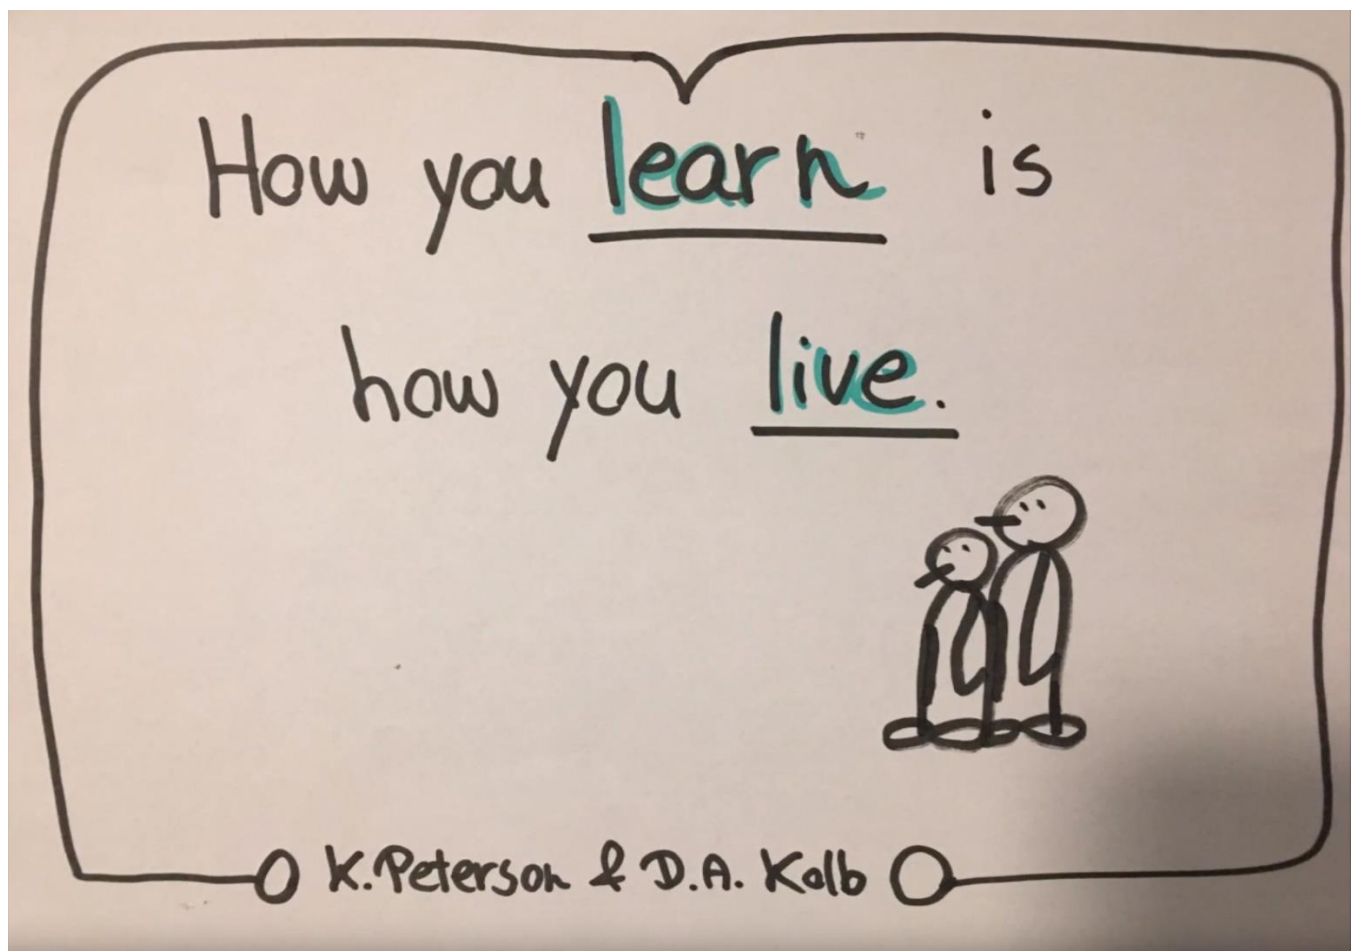 How you learn is
how you live.
K. Peterson & D.A. Kolb